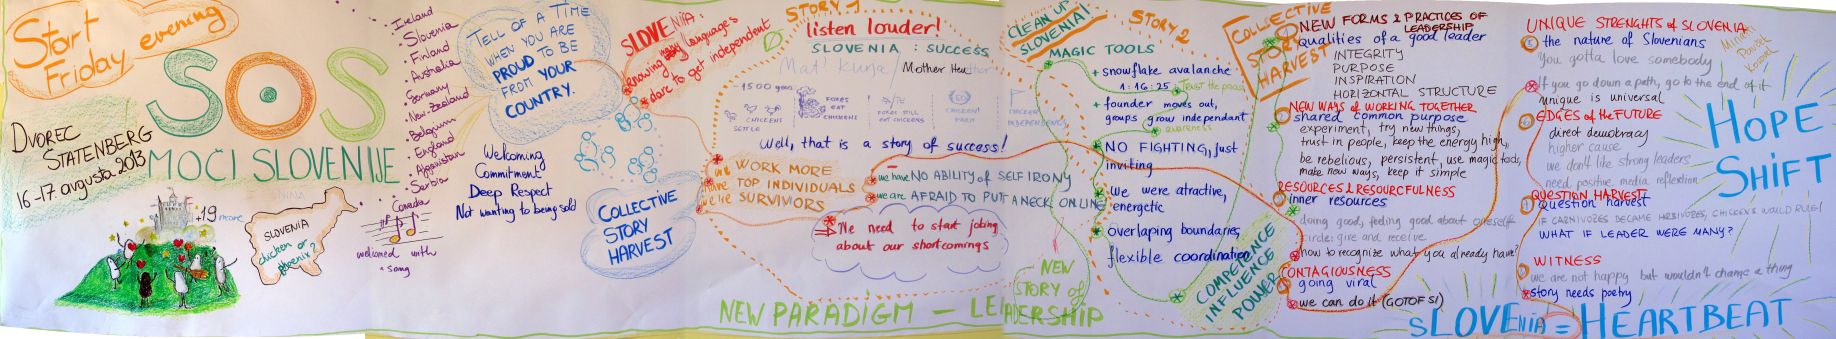 Start
Friday evening
SOS
MOČI SLOVENIJE
DVOREC
STATENBERG
16-17. avgusta 2013
+19 more
SLOVENIA
chicken or
phoenix?
Ireland
Slovenia
Finland
Australia
Germany
New-Zealand
Belgium
England
Afganistan
Serbia
Canada
welcomed with
a song
TELL OF A TIME
WHEN YOU ARE
PROUD TO BE
FROM YOUR
COUNTRY.
Welcoming
Commitment
Deep Respect
Not wanting to being sold
SLOVENIA:
knowing many languages
dare to get independent
COLLECTIVE
STORY
HARVEST
STORY 1
listen louder!
SLOVENIA: SUCCESS
Mat' Kurja / Mother Hen
-1500 years
CHICKENS
SETTLE
FOXES
EAT
CHICKENS
FOXES STILL
EAT CHICKENS
CHICKEN
PARTY
CHICKEN
INDEPENDENCY
Well, that is a story of success!
we WORK MORE
we have TOP INDIVIDUALS
we're SURVIVORS
we have NO ABILITY of SELF IRONY
we are AFRAID TO PUT A NECK ON LINE
We need to start joking
about our shortcomings
NEW PARADIGM – LEADERSHIP
CLEAN UP
SLOVENIA!
STORY 2
MAGIC TOOLS
+ snowflake avalanche
1:16:25
Trust the process
+ founder moves out,
groups grow independant
awareness
NO FIGHTING, just
inviting
we were atractive,
energetic
overlaping boundaries,
flexible coordination
NEW
STORY of
COMPETENCE
INFLUENCE
POWER
COLLECTIVE
STORY
HARVEST
NEW FORMS & PRACTICES OF
LEADERSHIP
qualities of a good leader
INTEGRITY
PURPOSE
INSPIRATION
HORIZONTAL STRUCTURE
NEW WAYS of WORKING TOGETHER
shared common purpose
experiment, try new things,
trust in people, keep the energy high,
be rebelious, persistent, use magic tools,
make new ways, keep it simple
RESOURCES & RESOURCFULNESS
inner resources
doing good, feeling good about oneself
circle: give and receive
how to recognize what you already have?
CONTAGIOUSNESS
going viral
we can do it (GOTOF SI)
UNIQUE STRENGHTS of SLOVENIA
the nature of Slovenians
You gotta love somebody
If you go down a path, go to the end of it
unique is universal
EDGES of the FUTURE
direct demokracy
higher cause
we don't like strong leaders
need positive media reflextion
QUESTION HARVEST
question harvest
IF CARNIVORES BECAME HERBIVORES, CHICKENS WOULD RULE!
WHAT IF LEADER WERE MANY?
WITNESS
we are not happy but wouldn't change a thing
story needs poetry
HOPE
SHIFT
SLOVEnia = HEARTBEAT